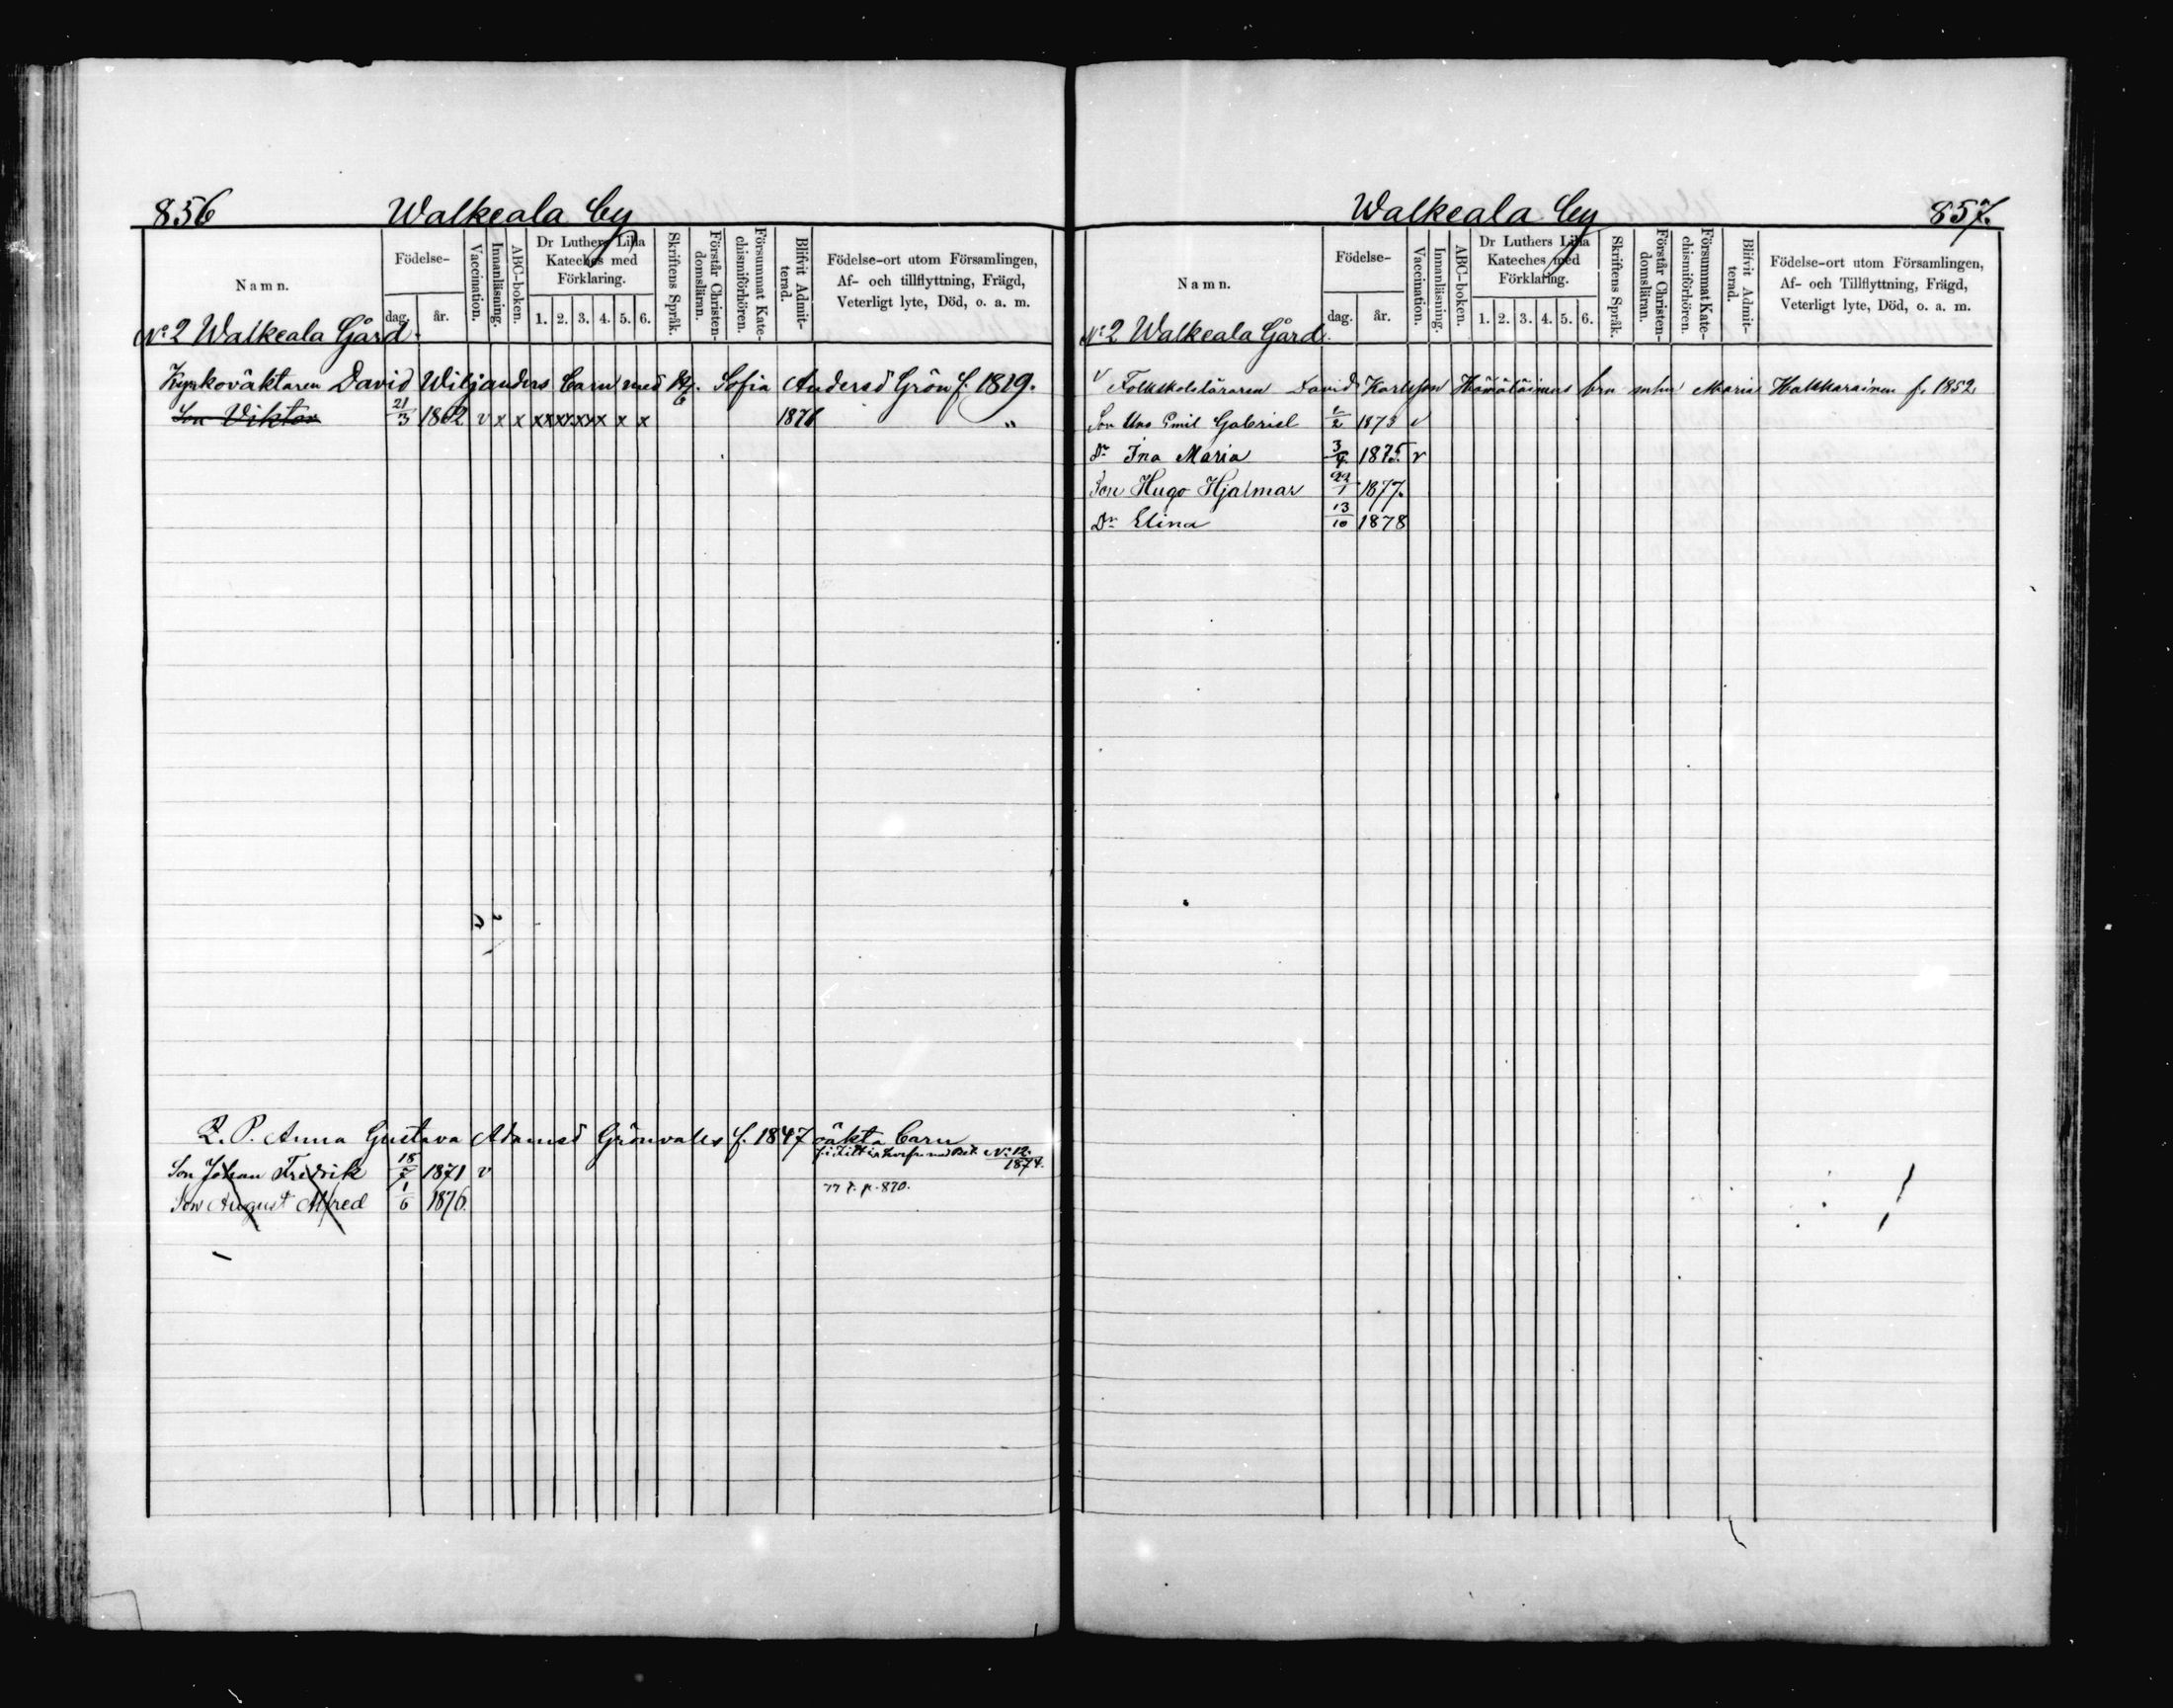 856 Walkeala by
Namn.
Födelse-
dag.
år.
Vaccination.
Innanläsning.
ABC-boken.
Dr Luthers Lilla
Kateches med
Förklaring.
1. 2. 3. 4. 5. 6.
Skriftens Språk.
Förstår Christen-
domsläran.
Försummat Kate-
chismiförhören.
Blifvit Admit-
terad.
Födelse-ort utom Församlingen,
Af- och tillflyttning, Frägd,
Veterligt lyte, Död, o. a. m.
No 2 Walkeala Gård.
Kyrkoväktaren David Wiljanders barn med Sofia Andersd Grön f. 1819.
Son Viktor 21/3 1862 v x x x x x x x x x x 1876 "
Anna Gustava Adamsd Grönvalls f. 1847 oäkta barn
No 12. 1874.
Son Johan Fredrik 18/7 1871 v
p. 870.
Son August Alfred 1/6 1876.
Walkeala by 857.
Namn.
Födelse-
dag.
år.
Vaccination.
Innanläsning.
ABC-boken.
Dr Luthers Lilla
Kateches med
Förklaring.
1. 2. 3. 4. 5. 6.
Skriftens Språk.
Förstår Christen-
domsläran.
Försummat Kate-
chismiförhören.
Blifvit Admit-
terad.
Födelse-ort utom Församlingen,
Af- och Tillflyttning, Frägd,
Veterligt lyte, Död, o. a. m.
No 2 Walkeala Gård.
v Folkskoleläraren David Karlsson brn Maria f. 1852
Son Uno Emil Gabriel 1873 v
Dr Ina Maria 1875 v
Son Hugo Hjalmar 22/1 1877.
Dr Elina 13/10 1878